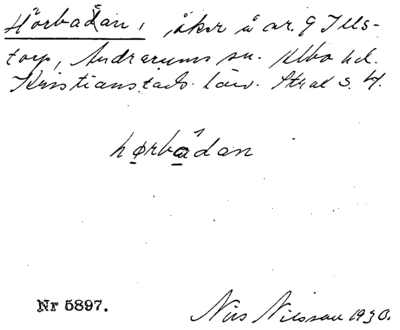 Hörbadan, åker å nr. 9 Ills-
torp, Andrarums sn. Albo hd.
Kristianstads län. Strax s. H.
hørbadan
Nr 5897.
Nils Nilsson 1930.